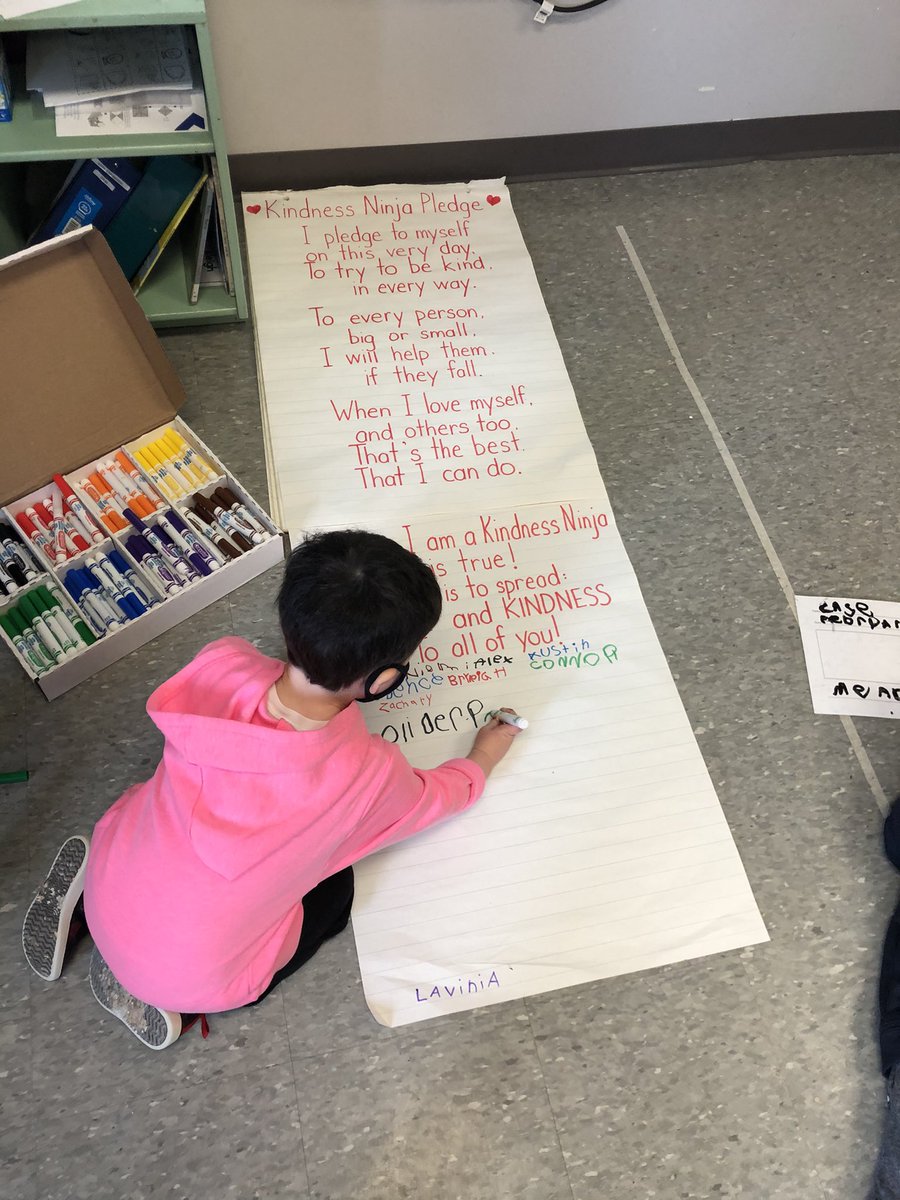 Kindness Ninja Pledge
I pledge to myself
on this very day,
To try to be kind,
in every way.
To every person,
big or small,
I will help them,
if they fall.
When I love myself,
and others too,
That's the best
That I can do.
I am a Kindness Ninja
is true!
is to spread:
and KINDNESS
to all of you!
Alex
KUStin
BryleigH
CONNOR
Zachary
OliDer.P
LAViniA
case